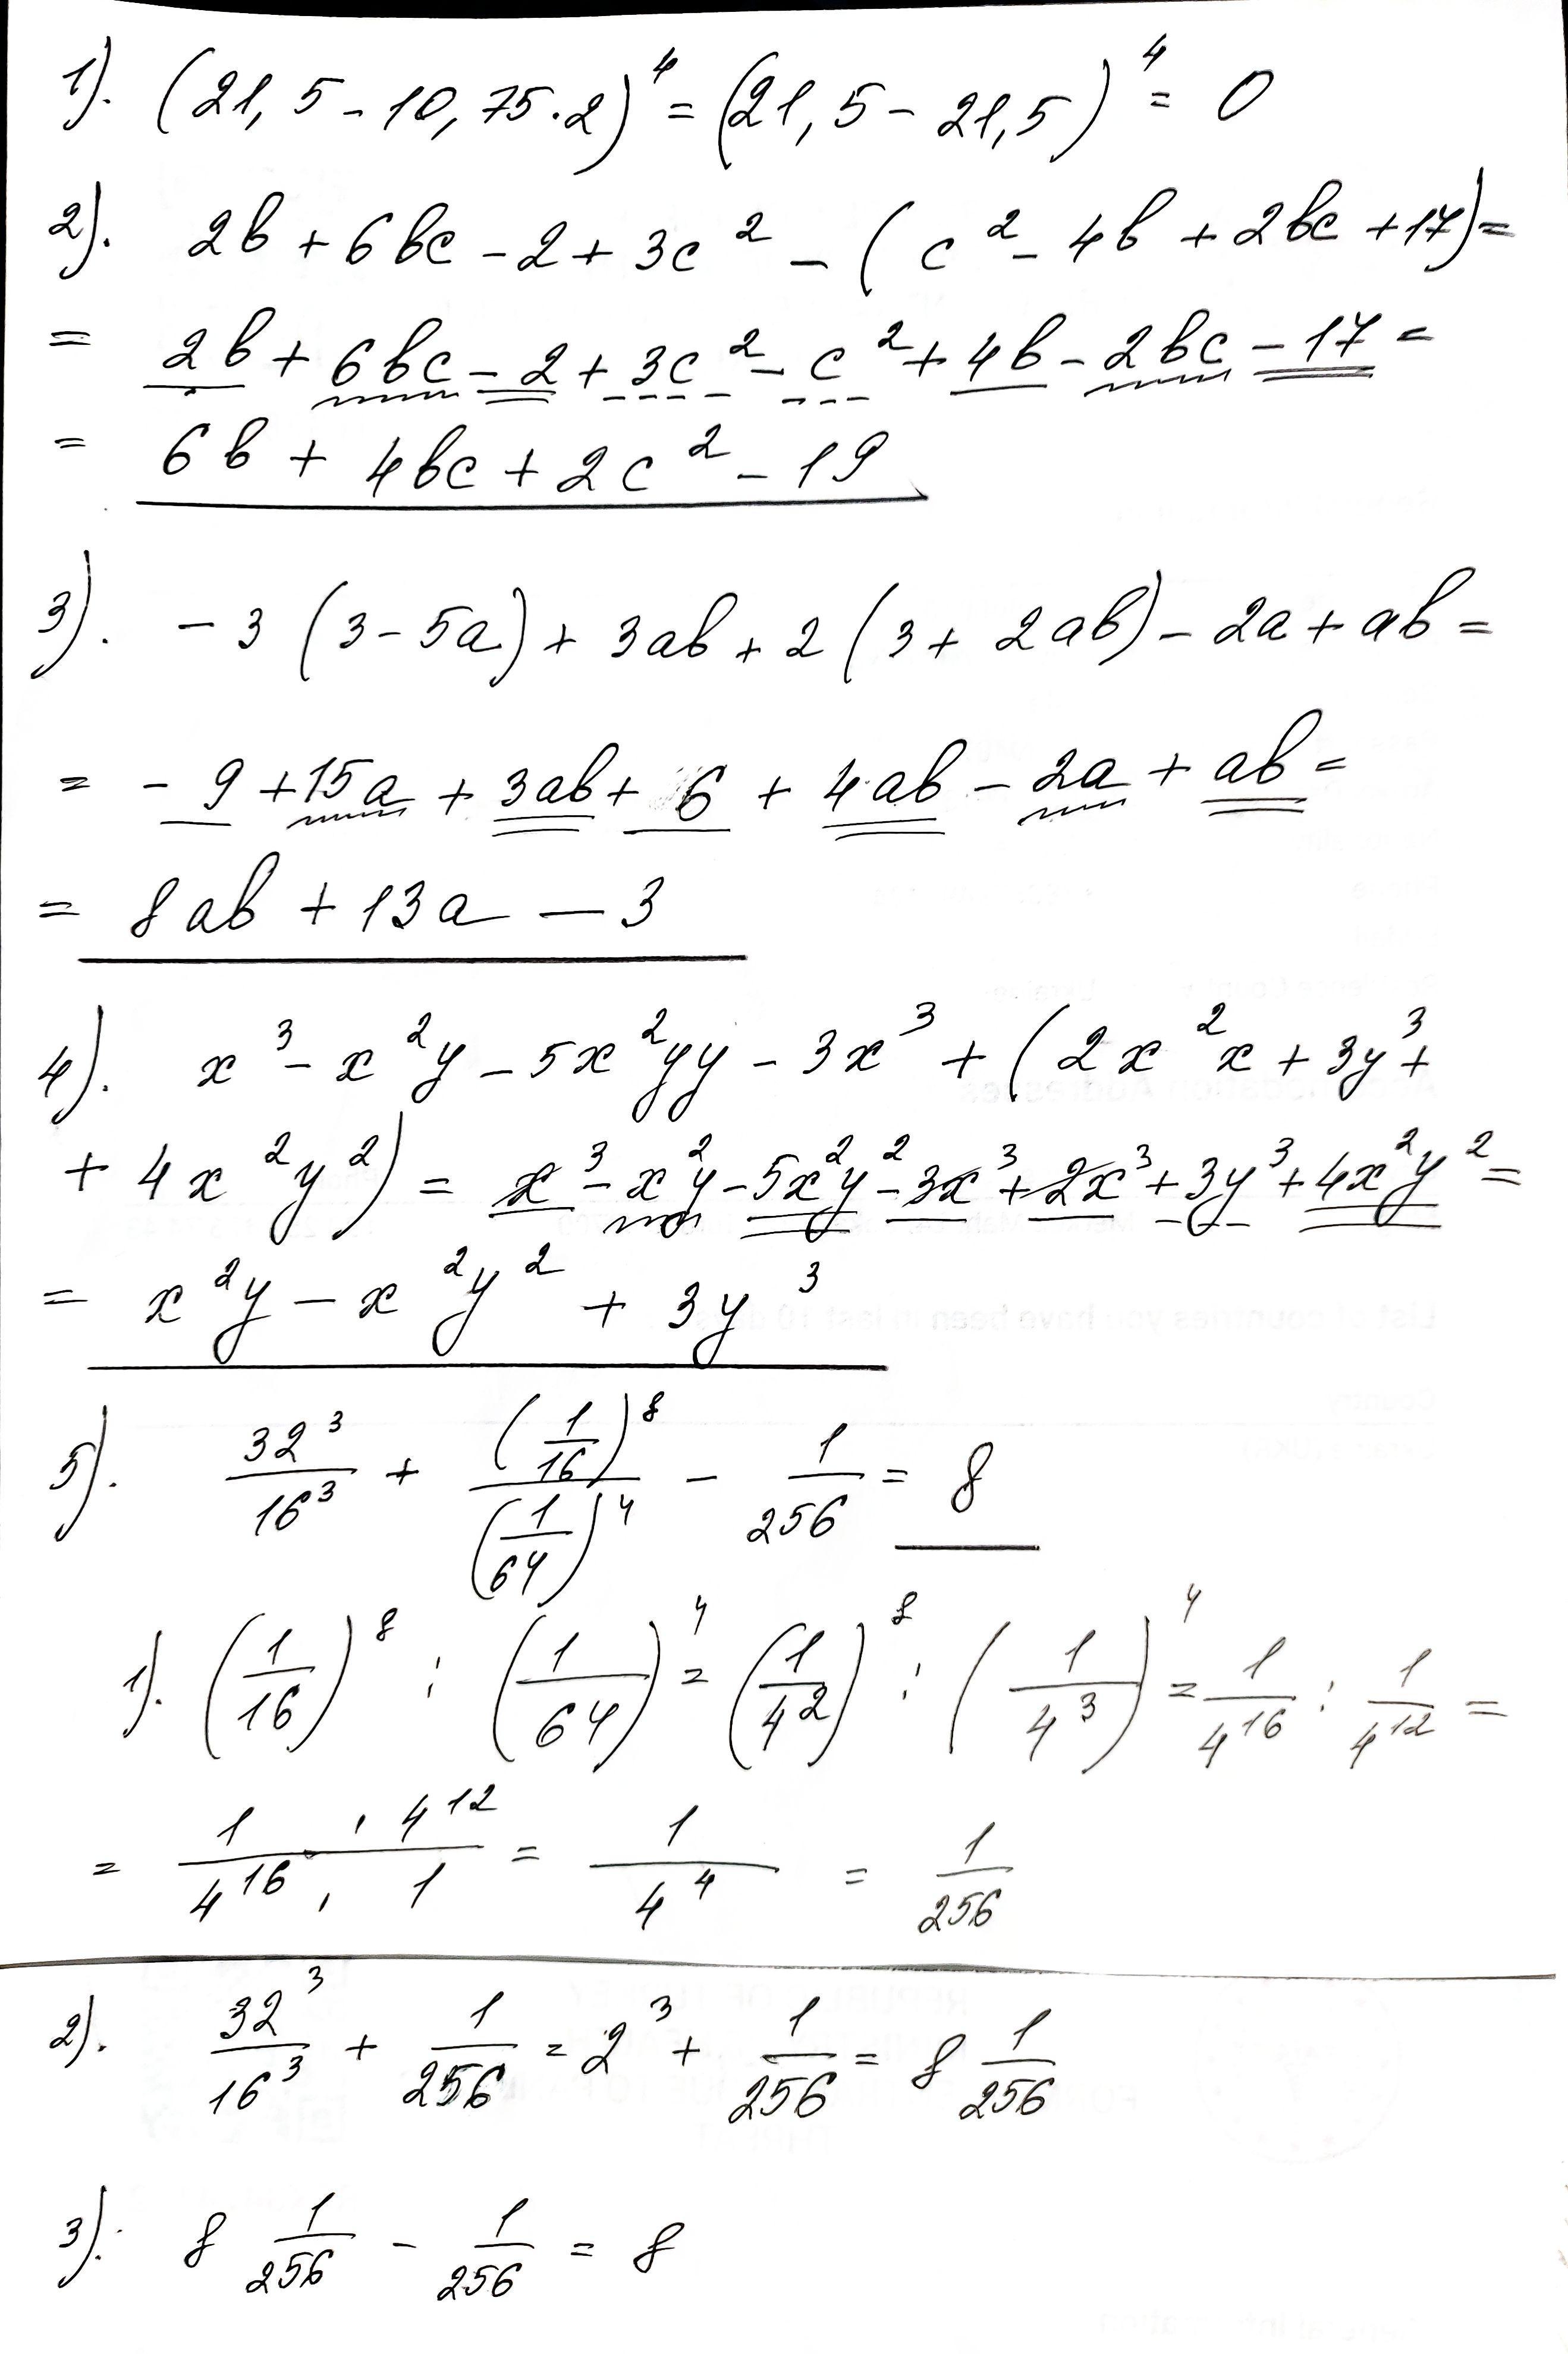 1). (21,5 - 10,75·2)⁴ = (21,5 - 21,5)⁴ = 0
2). 2b + 6bc - 2 + 3c² - (c² - 4b + 2bc + 17) =
= 2b + 6bc - 2 + 3c² - c² + 4b - 2bc - 17 =
= 6b + 4bc + 2c² - 19
3). -3(3 - 5a) + 3ab + 2(3 + 2ab) - 2a + ab =
= -9 + 15a + 3ab + 6 + 4ab - 2a + ab =
= 8ab + 13a - 3
4). x³ - x²y - 5x²yy - 3x³ + (2x²x + 3y³ +
+ 4x²y²) = x³ - x²y - 5x²y² - 3x³ + 2x³ + 3y³ + 4x²y² =
= x²y - x²y² + 3y³
5). 32³/16³ + (1/16)⁸/(1/64)⁴ - 1/256 = 8
1). (1/16)⁸ : (1/64)⁴ = (1/4²)⁸ : (1/4³)⁴ = 1/4¹⁶ : 1/4¹² =
= (1 · 4¹²)/(4¹⁶ · 1) = 1/4⁴ = 1/256
2). 32³/16³ + 1/256 = 2³ + 1/256 = 8 1/256
3). 8 1/256 - 1/256 = 8